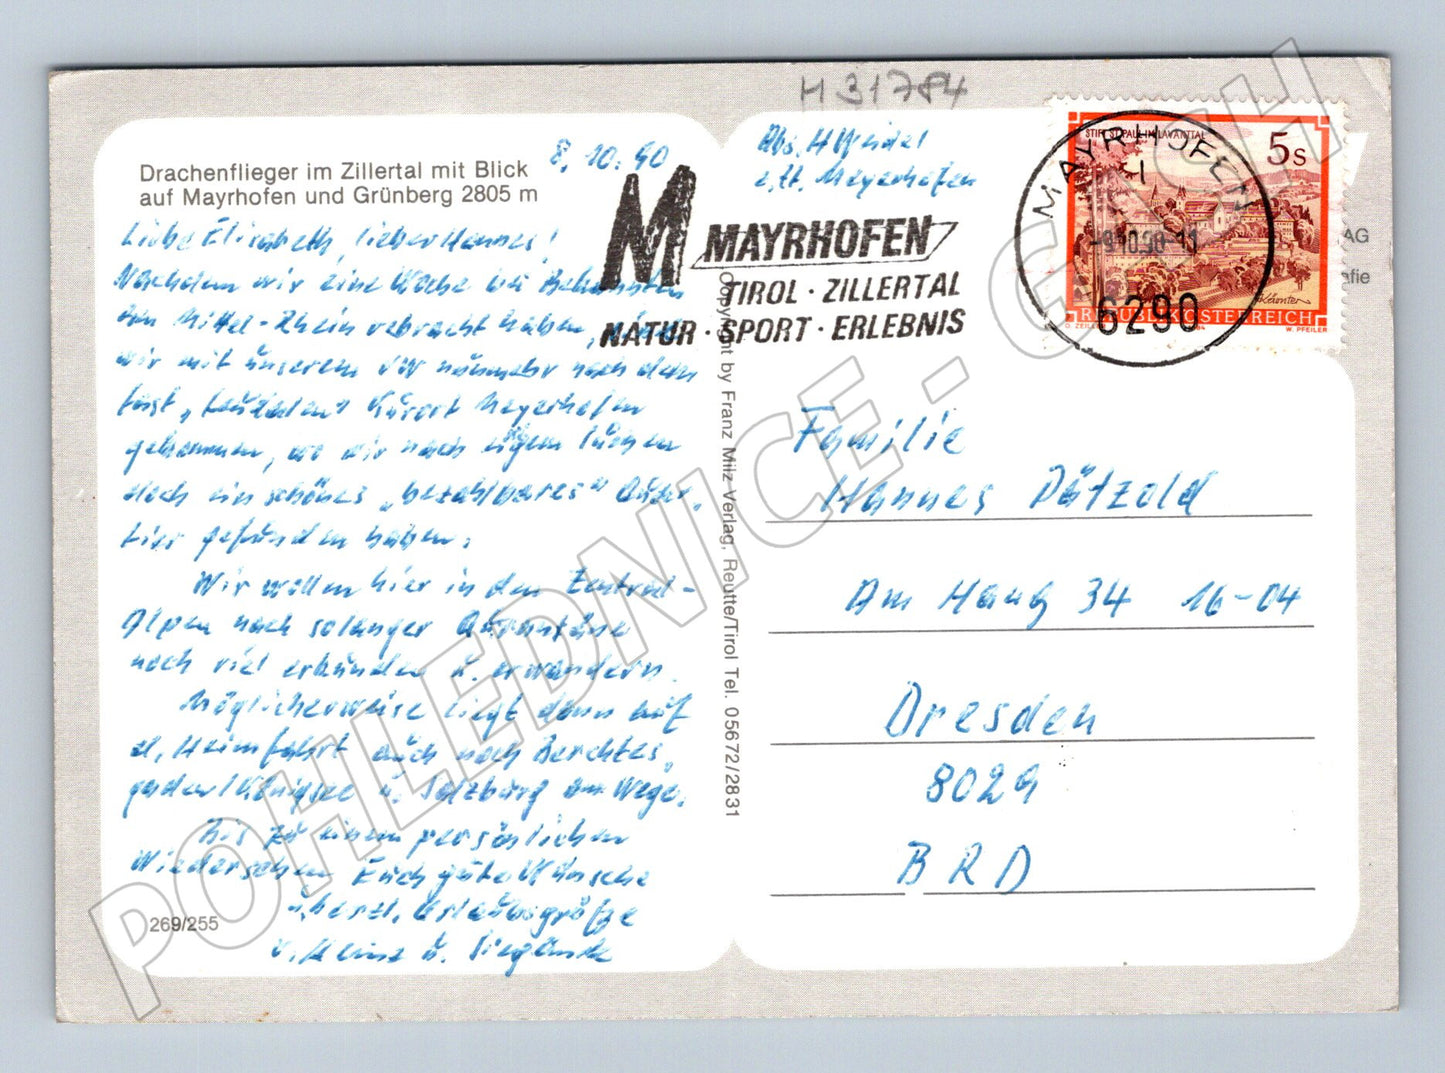 H 31784
Drachenflieger im Zillertal mit Blick
auf Mayrhofen und Grünberg 2805 m
8. 10. 90
Liebe Elisabeth, lieber Hannes!
Nachdem wir eine Woche bei Bekannten
am Mittel-Rhein verbracht haben, sind
wir mit unserem nunmehr nach dem
fast Kurort Mayrhofen
gekommen, wo wir nach Suchen
doch ein schönes „bezahlbares" Quar-
tier gefunden haben.
Wir wollen hier in den Zentral-
Alpen nach solanger Quarantäne
noch viel erkunden u. erwandern.
Möglicherweise liegt dann auf
d. Heimfahrt auch noch Berchtes-
gaden/Königsee u. Salzburg am Wege.
Bis zu einem persönlichen
Wiedersehen Euch gute Wünsche
u. herzl. Urlaubsgrüße
v. Heinz u. Sieglinde
269/255
Abs. H Weidel
z. Zt. Mayrhofen
M MAYRHOFEN
TIROL · ZILLERTAL
NATUR · SPORT · ERLEBNIS
MAYRHOFEN
1
-9.10.90-11
6290
STIFT ST. PAUL IM LAVANTTAL
5 S
REPUBLIK ÖSTERREICH
O. ZEILLER
W. PFEILER
AG
afie
Copyright by Franz Milz Verlag, Reutte/Tirol Tel. 05672/2831
Familie
Hannes Pätzold
Am Hang 34 16-04
Dresden
8029
BRD
POHLEDNICE - CZECH